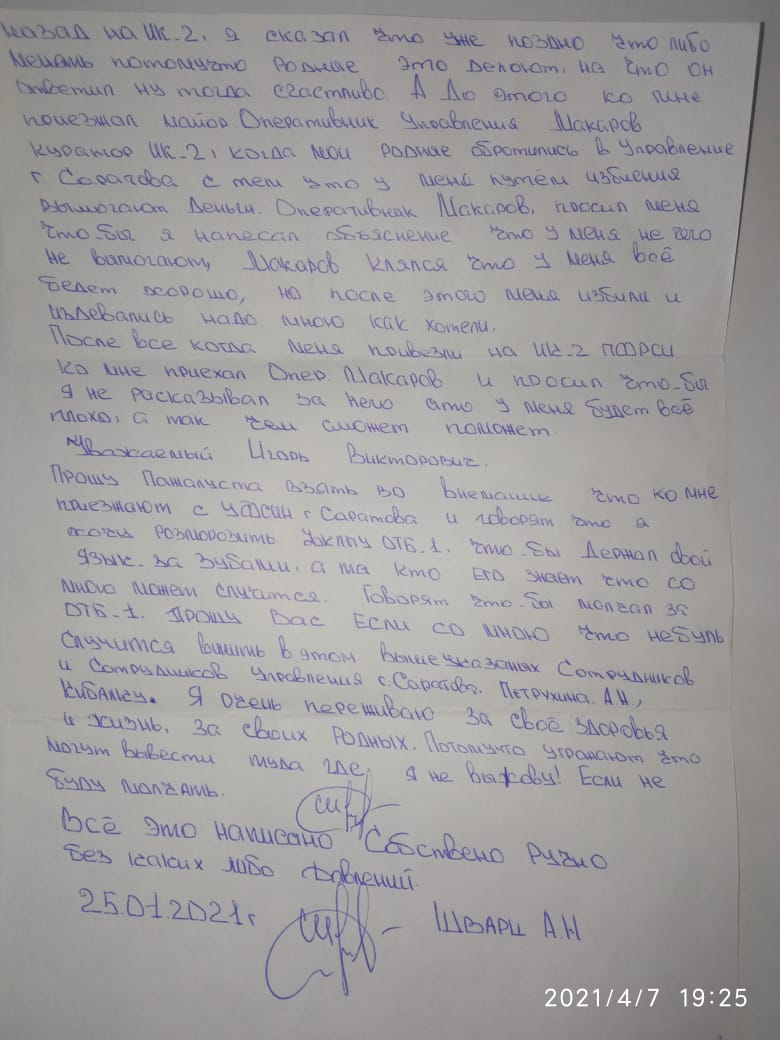 назад на ИК-2, я сказал что уже поздно что либо
менять потомучто родные это делают, на что он
ответил ну тогда счастливо. А до этого ко мне
приезжал майор. Оперативник Управления Макаров
куратор ИК-2, когда мои родные обротились в Управление
г. Саратова с тем что у меня путём избиения
вымогают деньги. Оперативник Макаров, просил меня
что-бы я написал объяснение что у меня не чего
не вамогают, Макаров клялся что у меня всё
будет хорошо, но после этого меня избили и
издевались надо мною как хотели.
После все когда меня привезли на ИК-2 ПФРСИ
ко мне приехал Опер. Макаров и просил что-бы
я не расказывал за него ато у меня будет всё
плохо, а так чем сможет поможет.
Уважаемый Игорь Викторович.
Прошу Пажалуста взять во внемание что ко мне
приезжают с УФСИН г. Саратова и говорят что я
хочу розморозить ОТБ.1. что-бы держал свой
язык-за зубами, а та кто его знает что со
мною может случится. Говорят что-бы молчал за
ОТБ-1. Прошу Вас Если со мною что небудь
случится винить в этом вышеуказаных Сотрудников
и Сотрудников Управления г. Саратова. Петрухина. А.Н.,
Я очень переживаю за своё здоровья
и жизнь, за своих родных. Потомучто угражают что
могут вывести туда где я не выжову! Если не
буду молчать.
Всё это написано Собствено Ручно
без каких либо давлений.
25.01.2021г Шварц А.Н
2021/4/7 19:25